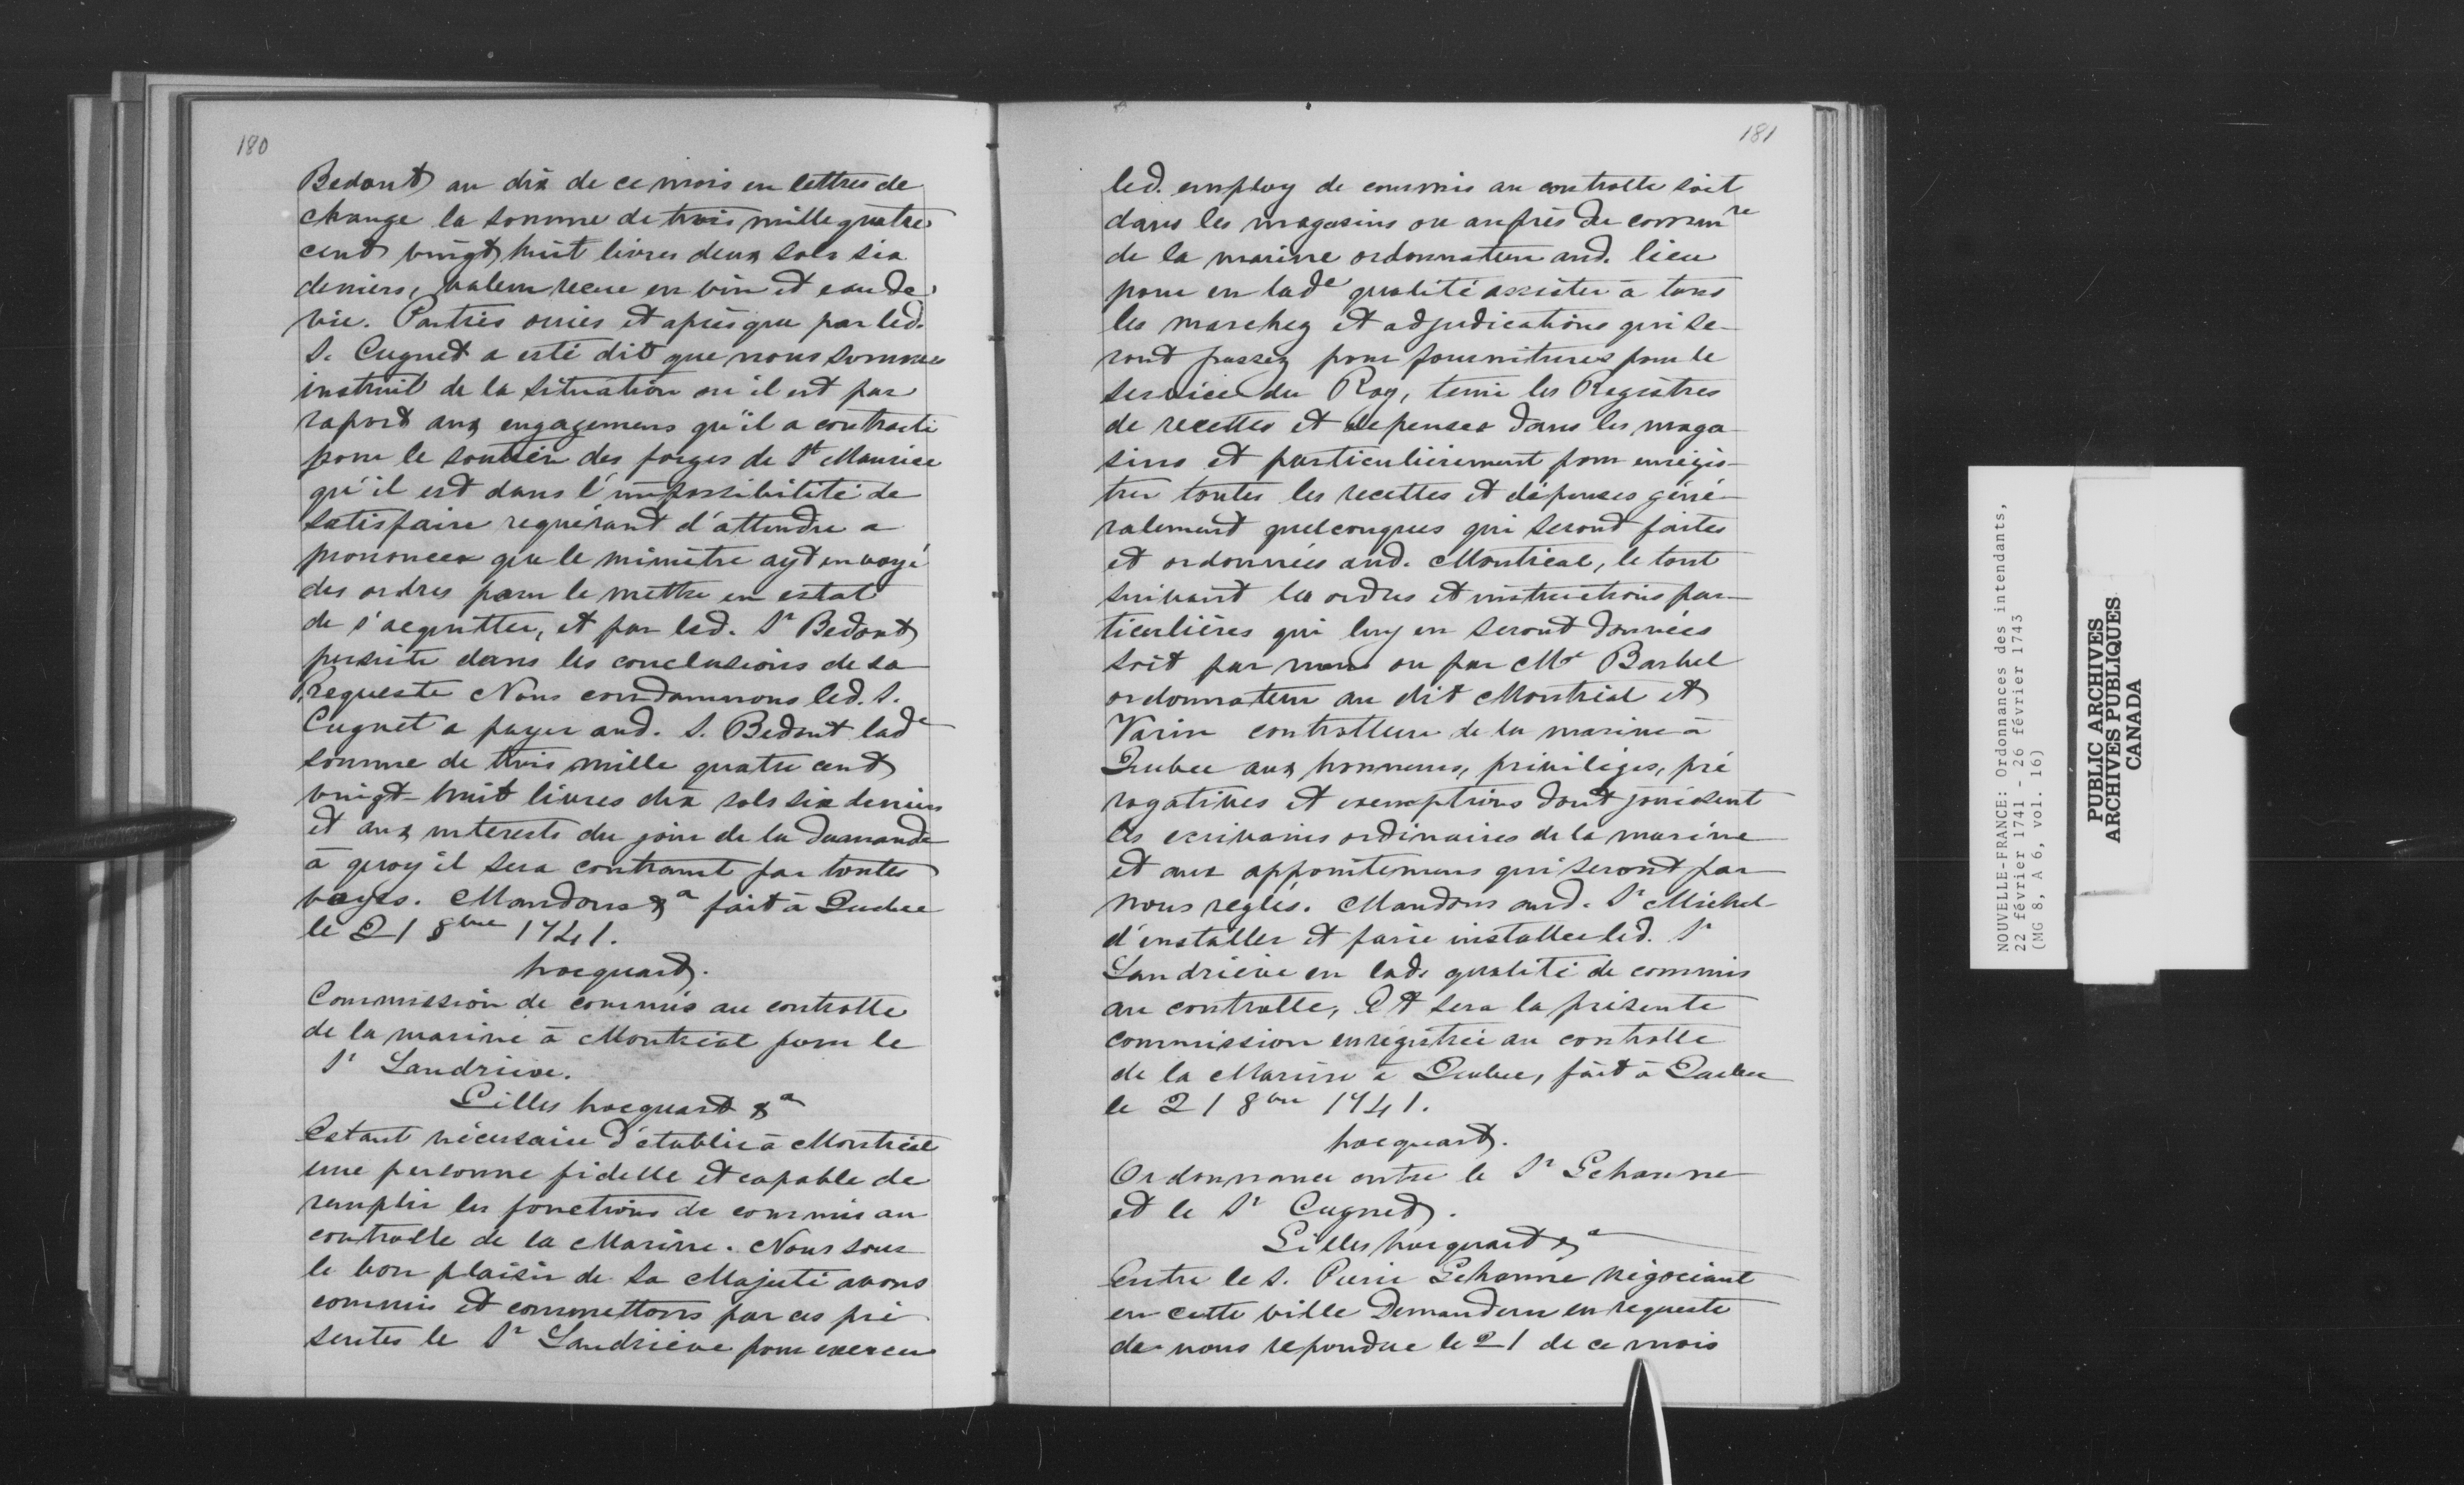 180
Bedout au dix de ce mois en lettres de
change la somme de trois mille quatre
cent vingt huit livres deux sols six
deniers, valeur recue en vin et eau de
vie. Parties ouies et après que par led.
S. Cugnet a esté dit que nous sommes
instruit de la situation ou il est par
raport aux engagemens qu'il a contracté
pour le soutien des forges de St Maurice
qu'il est dans l'impossibilité de
satisfaire requérant d'attendre a
prononcer que le ministre ayt envoyé
des ordres pour le mettre en estat
de s'acquitter, et par led. Sr Bedout
persiste dans les conclusions de sa
requeste Nous condamnons led. S.
Cugnet a payer aud. S. Bedout lade
somme de trois mille quatre cent
vingt-huit livres dix sols six deniers
et aux interests du jour de la demande
à quoy il sera contraint par toutes
voyes. Mandons &a fait à Quebec
le 21 8bre 1741.
hocquart.
Commission de commis au controlle
de la marine à Montreal pour le
Sr Landrieve.
Gilles hocquart &a
Estant nécessaire d'établir à Montréal
une personne fidelle et capable de
remplir les fonctions de commis au
controlle de la Marine. Nous sous
le bon plaisir de Sa Majesté avons
commis et commettons par ces pré
sentes le Sr Landriève pour exercer
181
led. employ de commis au controlle soit
dans les magasins ou auprès du commre
de la marine ordonnateur aud. lieu
pour en lade qualité assister à tous
les marchez et adjudications qui se-
ront passez pour fournitures pour le
service du Roy, tenir les Registres
de recettes et depenses dans les maga
sins et particulièrement pour enregis-
trer toutes les recettes et dépenses géné-
ralement quelconques qui seront faites
et ordonnées aud. Montreal, le tout
suivant les ordres et instructions par-
ticulières qui luy en seront données
soit par nous ou par Mr Barbel
ordonnateur au dit Montréal et
Varin controlleur de la marine à
Quebec aux honneurs, privilèges, pré
rogatives et exemptions dont jouissent
les ecrivains ordinaires de la marine
et aux appointemens qui seront par
nous reglés. Mandons aud. Sr Michel
d'installer et faire installer led. Sr
Landriève en lade qualité de commis
au controlle, Et sera la présente
commission enrégistrée au controlle
de la Marine à Quebec, fait à Quebec
le 21 8bre 1741.
hocquart.
Ordonnance entre le Sr Gehanne
et le Sr Cugnet.
Gilles hocquart &a
Entre le S. Pierre Gehanne négociant
en cette ville Demandeur en requeste
de nous repondue le 21 de ce mois
NOUVELLE-FRANCE: Ordonnances des intendants,
22 février 1741 - 26 février 1743
(MG 8, A 6, vol. 16)
PUBLIC ARCHIVES
ARCHIVES PUBLIQUES
CANADA